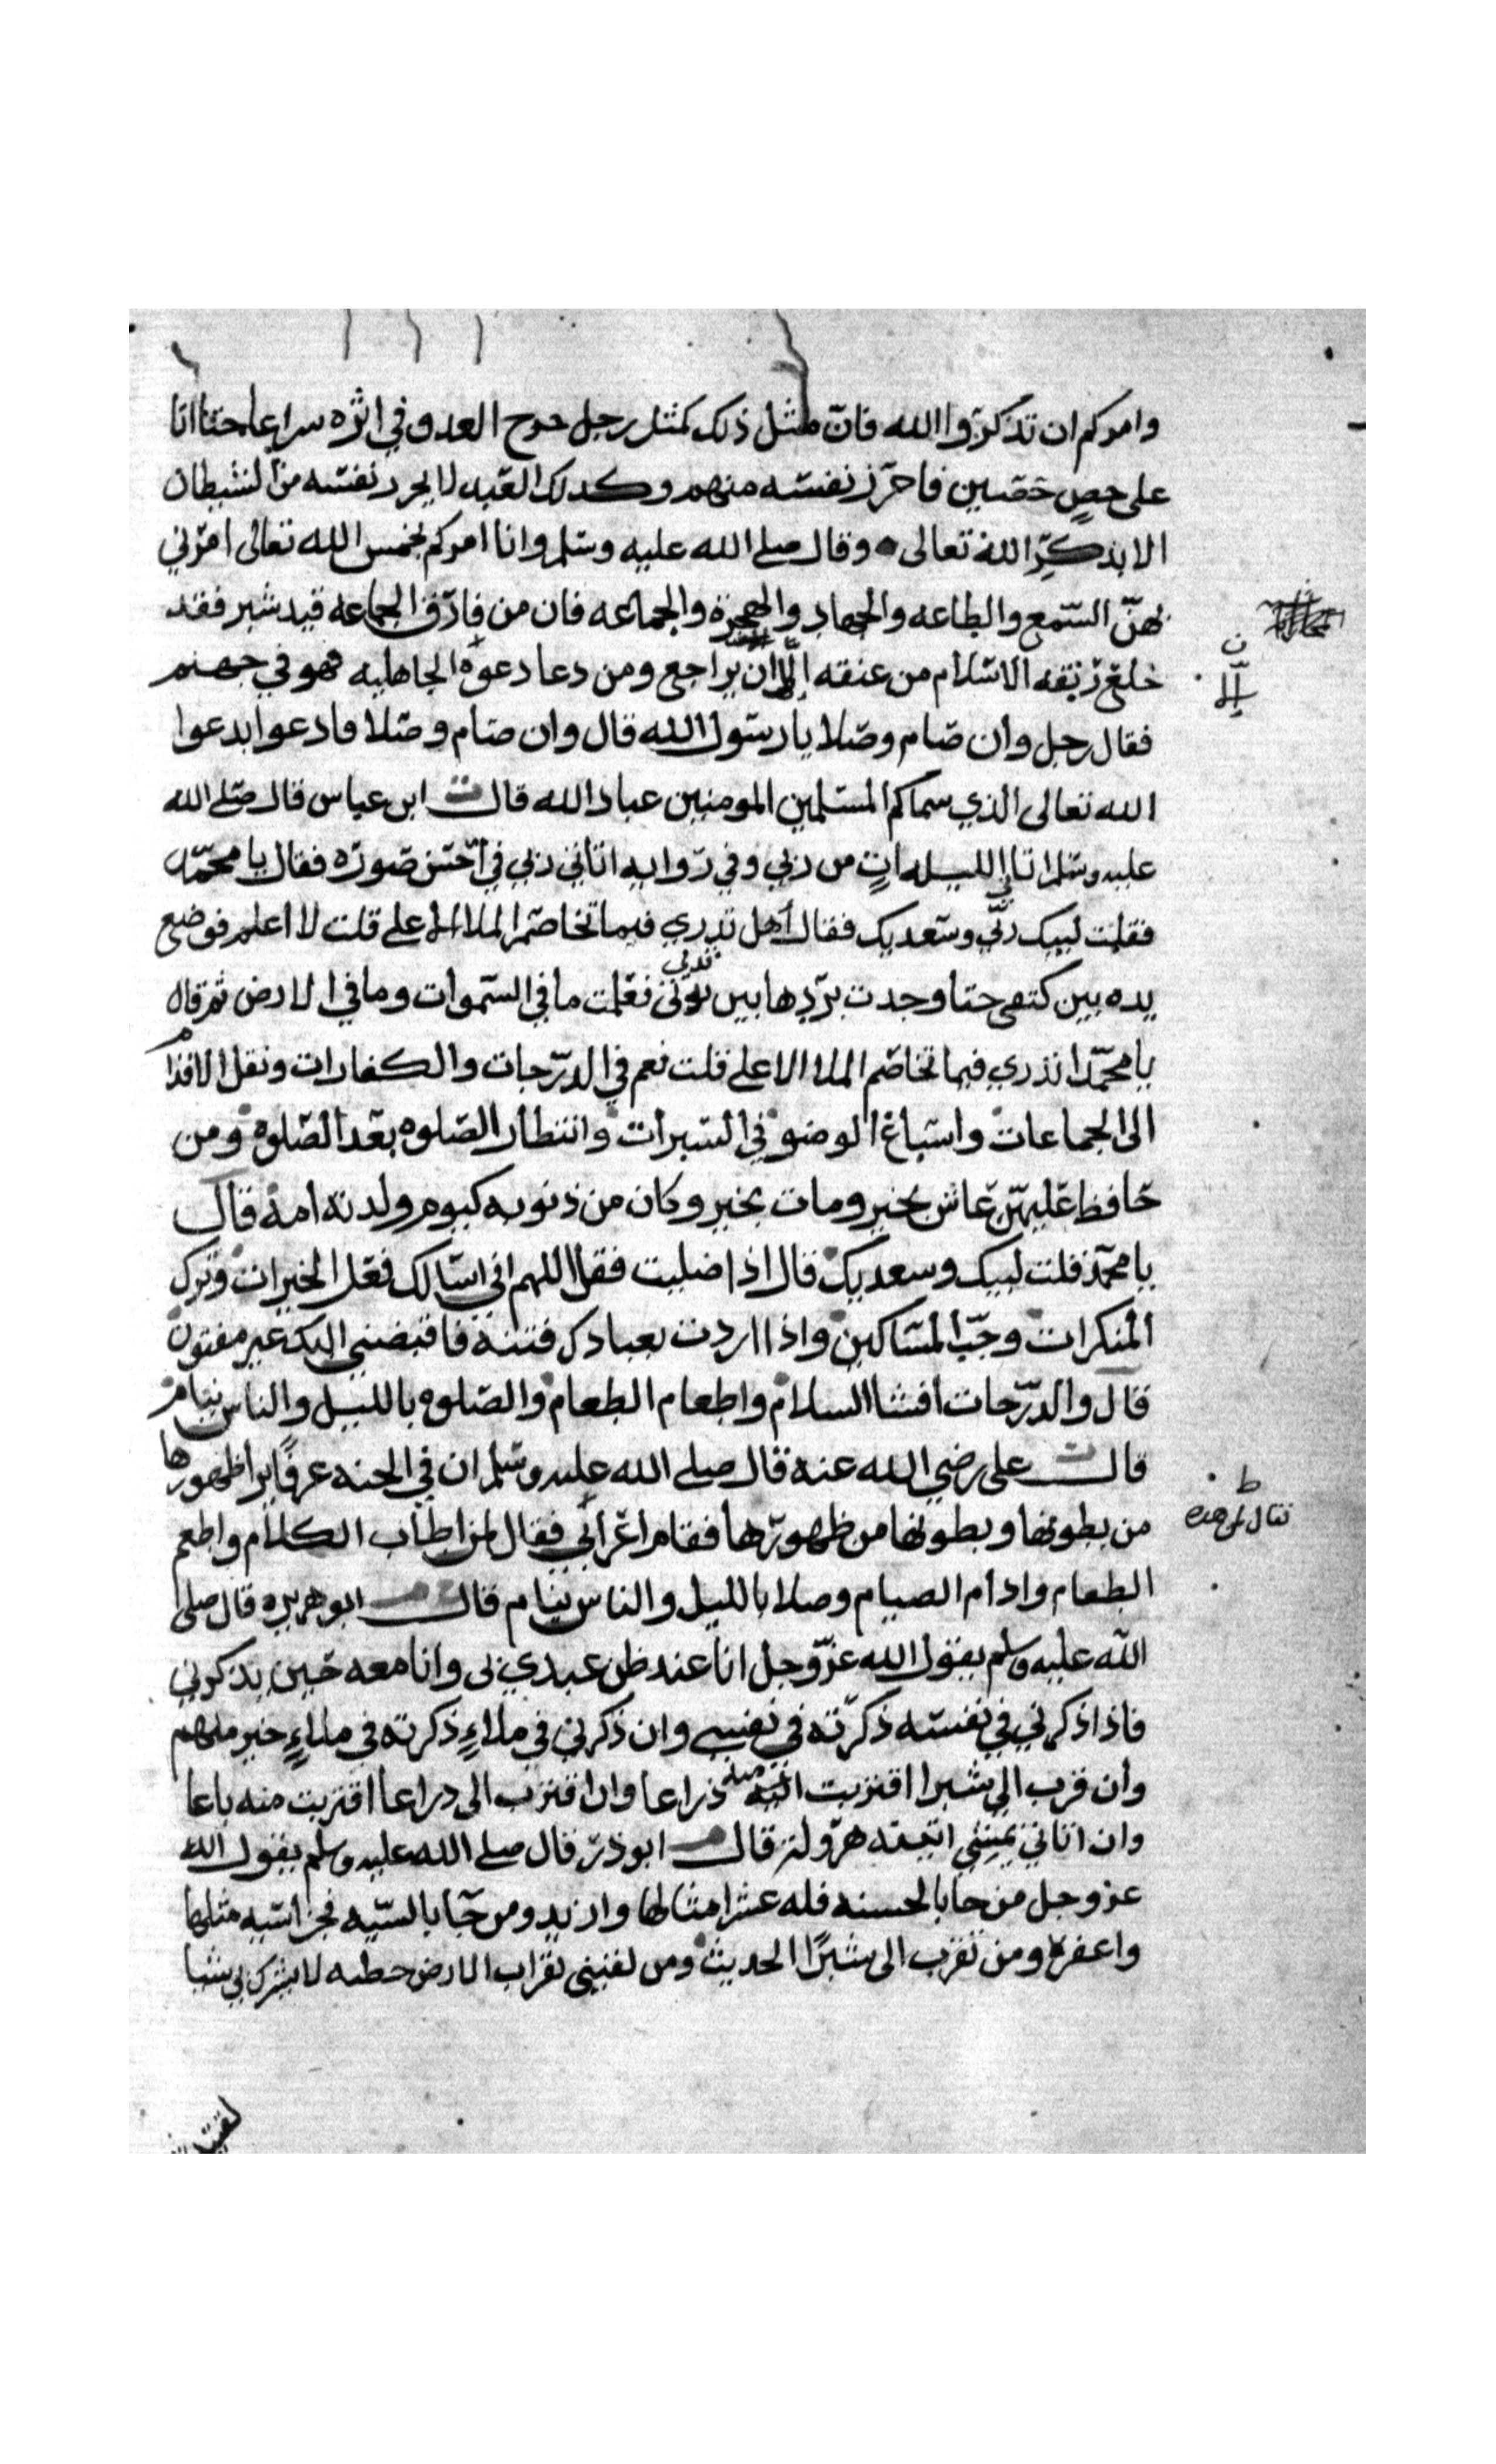 وامركم ان تذكروا الله فان مثل ذلك كمثل رجل خرج العدو في اثره سراعا حتا اتا
على حصن حصين فاحرز نفسه منهم وكذلك العبد لا يحرز نفسه من الشيطان
الا بذكر الله تعالى وقال صلى الله عليه وسلم وانا امركم بخمس الله تعالى امرني
بهن السمع والطاعه والجهاد والهجرة والجماعه فان من فارق الجماعه قيد شبر فقد
خلع ربقه الاسلام من عنقه إلا ان يراجع ومن دعا دعوة الجاهليه فهو في جهنم
فقال رجل وان صام وصلا يا رسول الله قال وان صام وصلا فادعوا بدعوا
الله تعالى الذي سماكم المسلمين المومنين عباد الله قال ابن عباس قال صلى الله
عليه وسلم اتاني الليله ات من ربي وفي روايه اتاني ربي في احسن صوره فقال يا محمد
فقلت لبيك ربي وسعديك فقال هل تدري فيما تخاصم الملا الاعلى قلت لا اعلم فوضع
يده بين كتفي حتا وجدت بردها بين ثديي فعلمت ما في السموات وما في الارض ثم قال
يا محمد اتدري فيما تخاصم الملا الاعلى قلت نعم في الدرجات والكفارات ونقل الاقدام
الى الجماعات واسباغ الوضو في السبرات وانتظار الصلوه بعد الصلوة ومن
حافظ عليهن عاش بخير ومات بخير وكان من ذنوبه كيوم ولدته امه قال
يا محمد قلت لبيك وسعديك قال اذا صليت فقل اللهم اني اسالك فعل الخيرات وترك
المنكرات وحب المساكين واذا اردت بعبادك فتنة فاقبضني اليك غير مفتون
قال والدرجات افشا السلام واطعام الطعام والصلوه بالليل والناس نيام
قال على رضي الله عنه قال صلى الله عليه وسلم ان في الجنه غرفا يرا ظهورها
من بطونها وبطونها من ظهورها فقام اعرابي فقال لمن اطاب الكلام واطعم
الطعام وادام الصيام وصلا بالليل والناس نيام قال ابو هريره قال صلى
الله عليه وسلم يقول الله عز وجل انا عند ظن عبدي بى وانا معه حين يذكرني
فاذا ذكرني في نفسه ذكرته في نفسي وان ذكرني في ملاء ذكرته في ملاء خير منهم
وان قرب الي شبرا اقتربت اليه منه ذراعا وان اقترب الى ذراعا اقتربت منه باعا
وان اتاني يمشي اتيته هرولة قال ابو ذر قال صلى الله عليه وسلم يقول الله
عز وجل من جا بالحسنه فله عشر امثالها وازيد ومن جا بالسيه فجزا سيه مثلها
واغفر ومن تقرب الى شبرا الحديث ومن لقيني بقراب الارض خطيه لا يشرك بي شيا